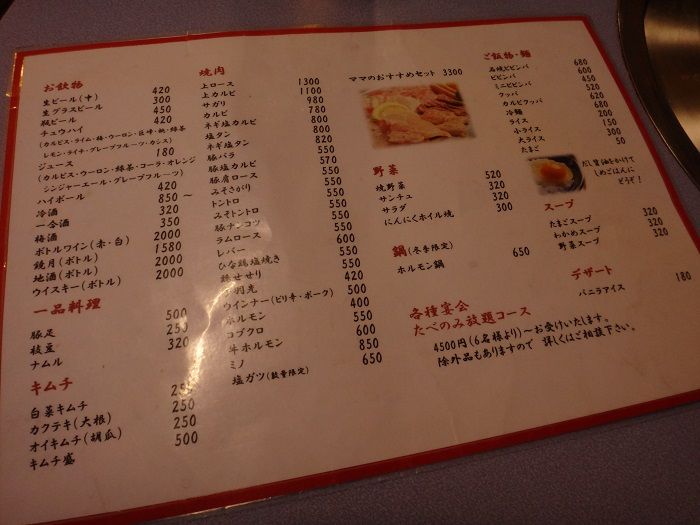 お飲物
生ビール(中) 420
生グラスビール 300
瓶ビール 450
チュウハイ 420
(カルピス・ライム・梅・ウーロン・巨峰・桃・緑茶
レモン・ライチ・グレープフルーツ・カシス)
ジュース 180
(カルピス・ウーロン・緑茶・コーラ・オレンジ
シンジャーエール・グレープフルーツ)
ハイボール 420
冷酒 850〜
一合酒 350
梅酒 420
ボトルワイン(赤・白) 2000
鏡月(ボトル) 1580
地酒(ボトル) 2000
ウイスキー(ボトル) 2000
一品料理
豚足 500
枝豆 250
ナムル 320
キムチ
白菜キムチ 250
カクテキ(大根) 250
オイキムチ(胡瓜) 250
キムチ盛 500
焼肉
上ロース 1300
上カルビ 1100
サガリ 980
カルビ 780
ネギ塩カルビ 800
塩タン 800
ネギ塩タン 820
豚バラ 550
豚塩カルビ 570
豚肩ロース 550
みそさがり 550
トントロ 550
みそトントロ 550
豚ナンコツ 550
ラムロース 600
レバー 550
ひな鶏塩焼き 550
せせり 420
550
ウインナー(ピリ辛・ポーク) 500
ホルモン 400
コブクロ 550
牛ホルモン 600
ミノ 850
塩ガツ(数量限定) 650
ママのおすすめセット 3300
野菜
焼野菜 520
サンチュ 320
サラダ 320
にんにくホイル焼 300
鍋(冬季限定)
ホルモン鍋 650
各種宴会
たべのみ放題コース
4500円(6名様より)〜お受けいたします。
除外品もありますので 詳しくはご相談下さい。
ご飯物・麺
石焼ビビンバ 680
ビビンバ 600
ミニビビンバ 450
クッパ 520
カルビクッパ 620
冷麺 680
ライス 200
小ライス 150
大ライス 300
たまご 50
だし醤油をかけて
しめごはんに
どうぞ!
スープ
たまごスープ 320
わかめスープ 320
野菜スープ 320
デザート
バニラアイス 180